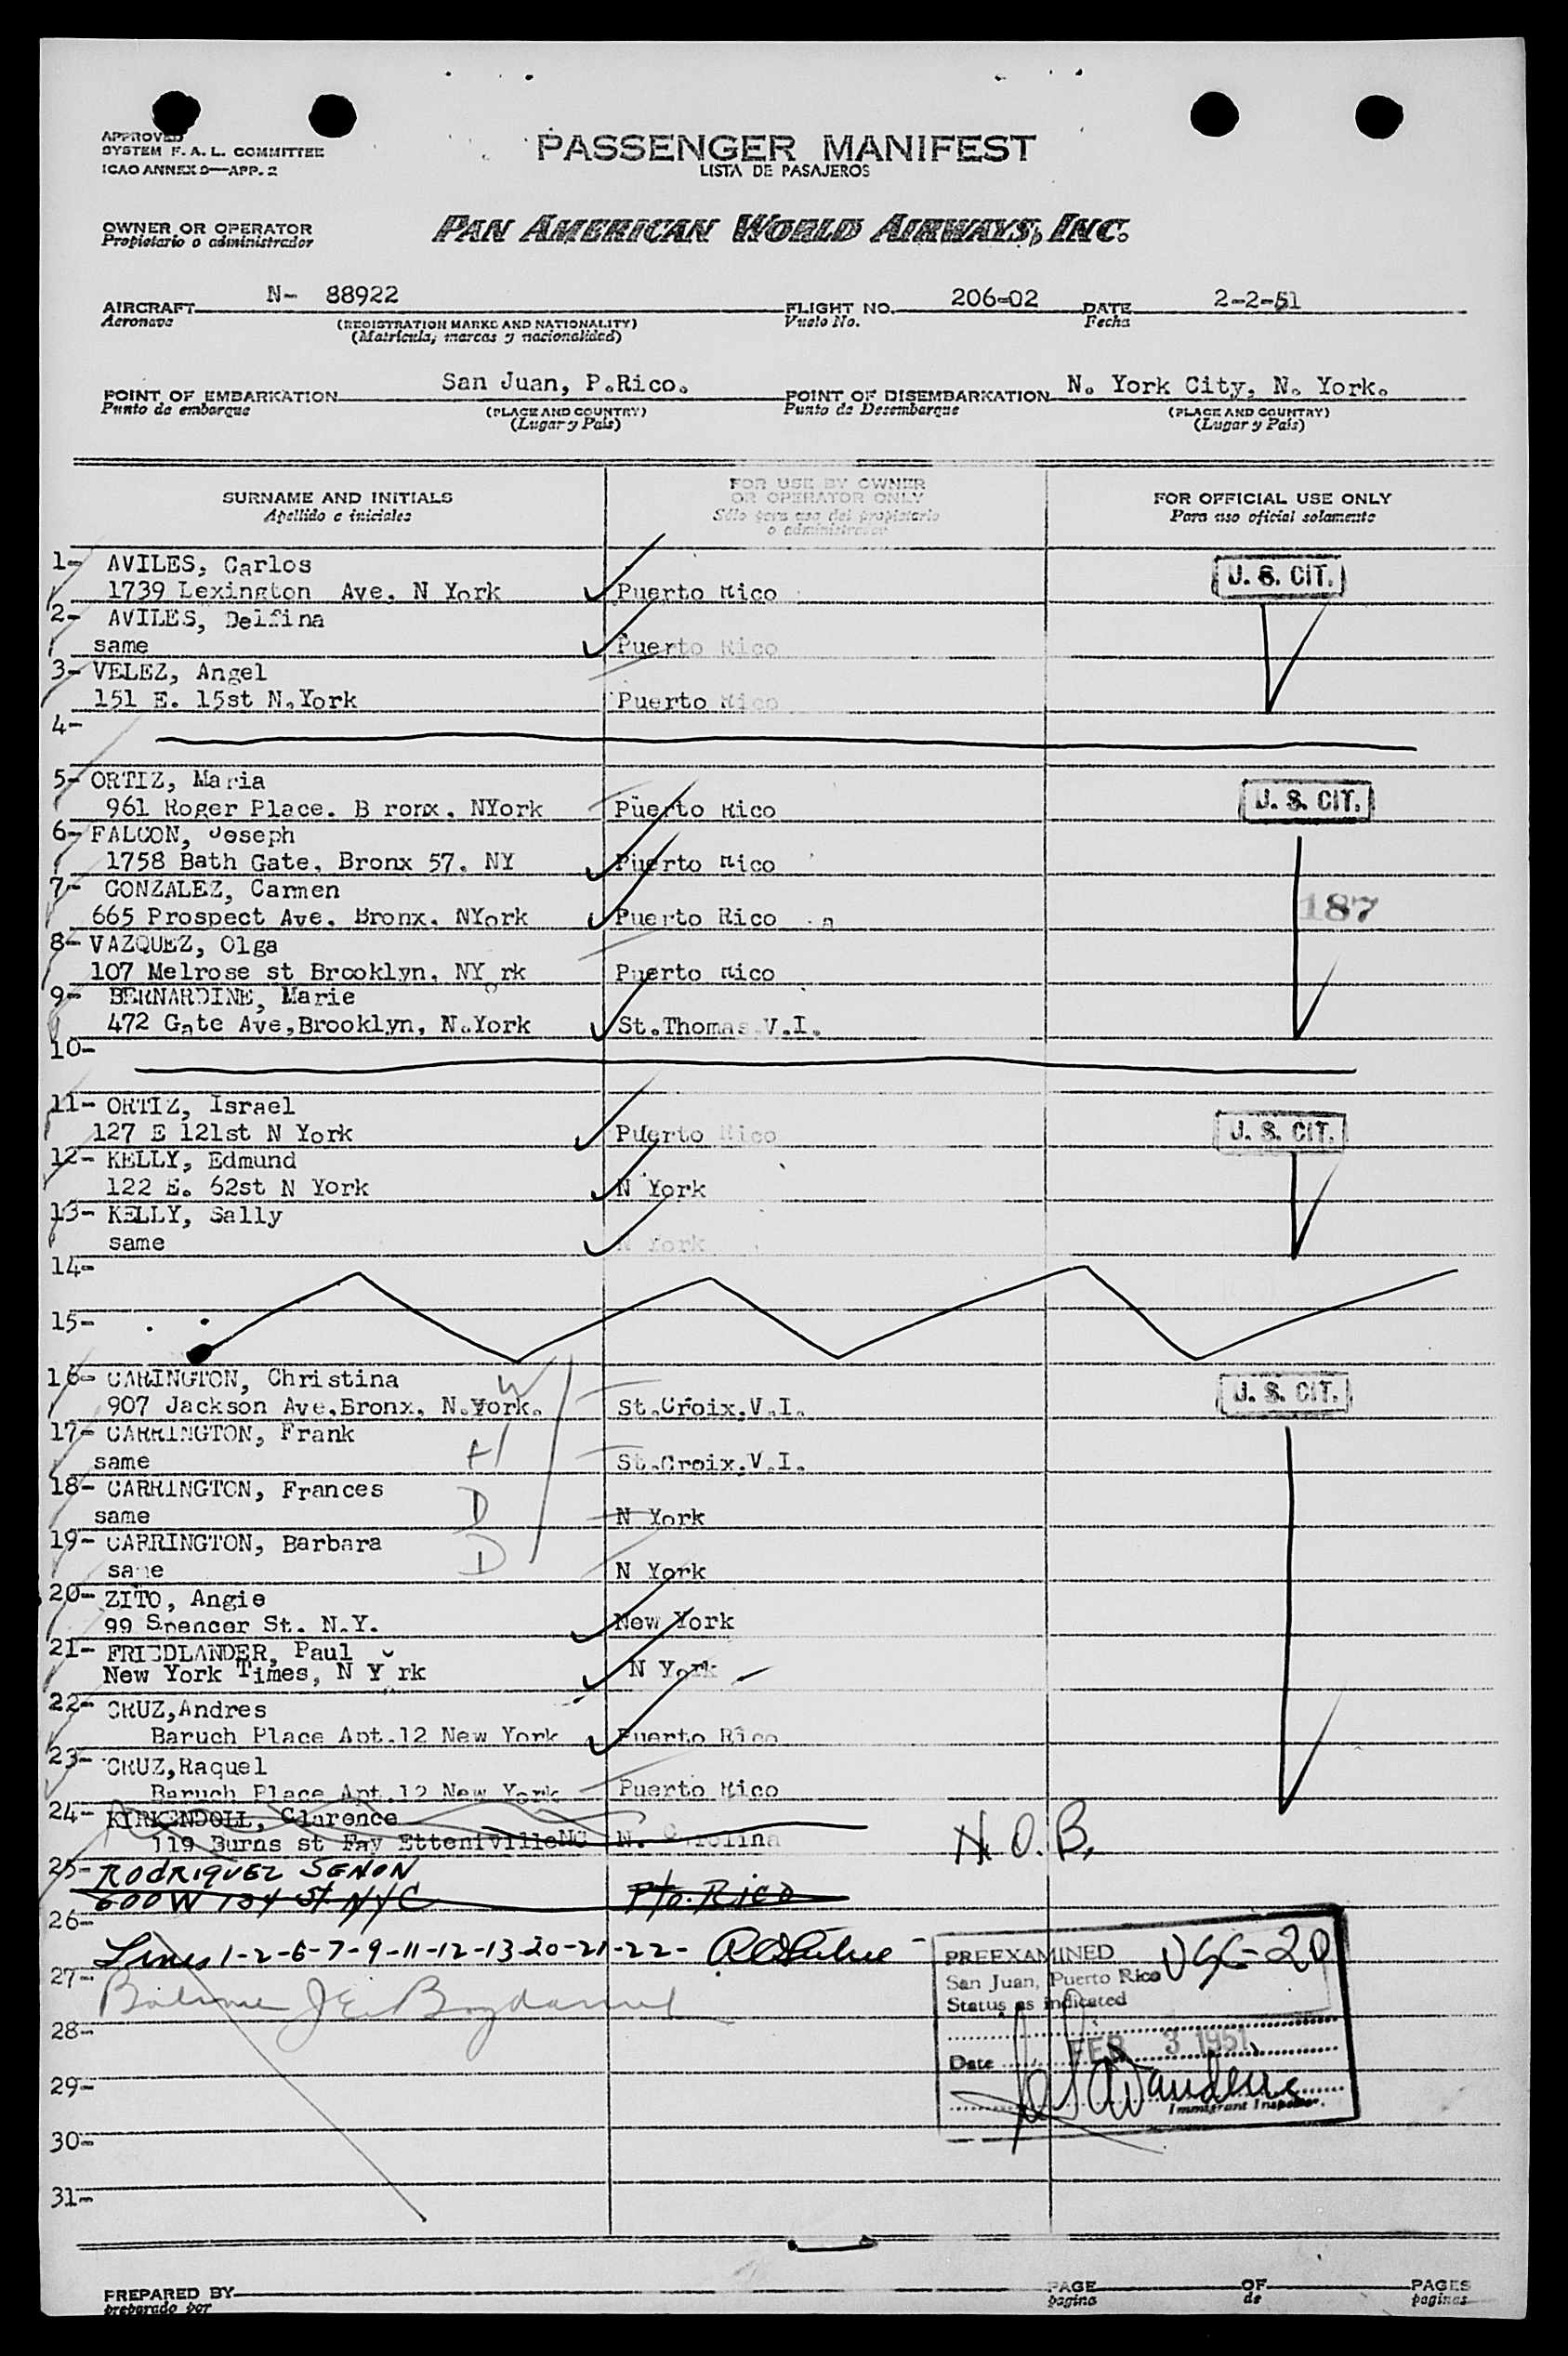 APPROVED
SYSTEM F. A. L. COMMITTEE
ICAO ANNEX 9—APP. 2
PASSENGER MANIFEST
LISTA DE PASAJEROS
OWNER OR OPERATOR
Propietario o administrador
PAN AMERICAN WORLD AIRWAYS, INC.
AIRCRAFT N- 88922 FLIGHT NO. 206-02 DATE 2-2-51
Aeronave (REGISTRATION MARKS AND NATIONALITY) Vuelo No. Fecha
(Matrícula, marcas y nacionalidad)
POINT OF EMBARKATION San Juan, P.Rico. POINT OF DISEMBARKATION N. York City, N. York.
Punto de embarque (PLACE AND COUNTRY) Punto de Desembarque (PLACE AND COUNTRY)
(Lugar y País) (Lugar y País)
SURNAME AND INITIALS
Apellido e iniciales
FOR USE BY OWNER
OR OPERATOR ONLY
Sólo para uso del propietario
o administrador
FOR OFFICIAL USE ONLY
Para uso oficial solamente
1- AVILES, Carlos
1739 Lexington Ave. N York Puerto Rico U. S. CIT.
2- AVILES, Delfina
same Puerto Rico
3- VELEZ, Angel
151 E. 15st N.York Puerto Rico
4-
5- ORTIZ, Maria
961 Roger Place. B ronx. NYork Puerto Rico U. S. CIT.
6- FALCON, Joseph
1758 Bath Gate, Bronx 57. NY Puerto Rico
7- GONZALEZ, Carmen
665 Prospect Ave. Bronx. NYork Puerto Rico 187
8- VAZQUEZ, Olga
107 Melrose st Brooklyn. NYork Puerto Rico
9- BERNARDINE, Marie
472 Gate Ave,Brooklyn, N.York St.Thomas.V.I.
10-
11- ORTIZ, Israel
127 E 121st N York Puerto Rico U. S. CIT.
12- KELLY, Edmund
122 E. 62st N York N York
13- KELLY, Sally
same N York
14-
15-
16- CARINGTON, Christina W
907 Jackson Ave,Bronx, N.York. St.Croix.V.I. U. S. CIT.
17- CARRINGTON, Frank H
same St.Croix.V.I.
18- CARRINGTON, Frances D
same N York
19- CARRINGTON, Barbara D
same N York
20- ZITO, Angie
99 Spencer St. N.Y. New York
21- FRIEDLANDER, Paul
New York Times, N Y rk N York
22- CRUZ,Andres
Baruch Place Apt.12 New York Puerto Rico
23- CRUZ,Raquel
Baruch Place Apt.12 New York Puerto Rico
24- KIRKENDOLL, Clarence
119 Burns st Fay EttenivilleNC N. Carolina N. O. B.
25- RODRIQUEZ SENON
600 W 134 St. NYC Pto. Rico
26-
Lines 1-2-6-7-9-11-12-13-20-21-22-
27-
28-
29-
30-
31-
PREEXAMINED USC-20
San Juan, Puerto Rico
Status as indicated
Date FEB 3 1951
Immigrant Inspector.
PREPARED BY PAGE OF PAGES
preparado por pagina de paginas